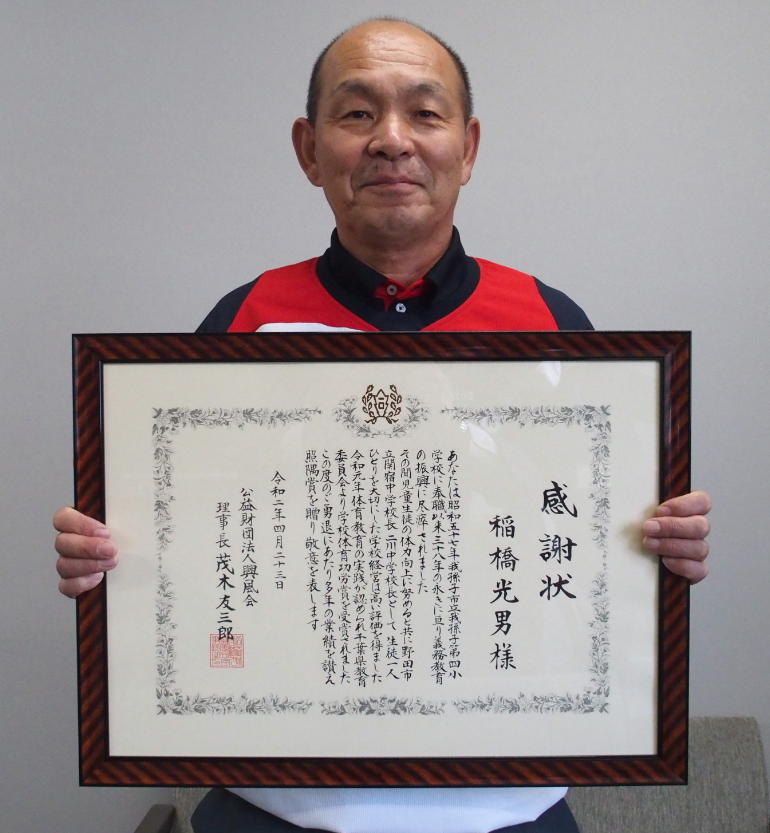 感謝状
稲橋光男様
あなたは昭和五十七年我孫子市立我孫子第四小
学校に奉職以来三十八年の永きに亘り義務教育
の振興に尽瘁されました
その間児童生徒の体力向上に努めると共に野田市
立関宿中学校長二川中学校長として生徒一人
ひとりを大切にした学校経営は高い評価を得ました
令和元年体育教育の実践が認められ千葉県教育
委員会より学校体育功労賞を受賞されました
この度のご勇退にあたり多年の業績を讃え
照隅賞を贈り敬意を表します
令和二年四月二十三日
公益財団法人興風会
理事長 茂木友三郎